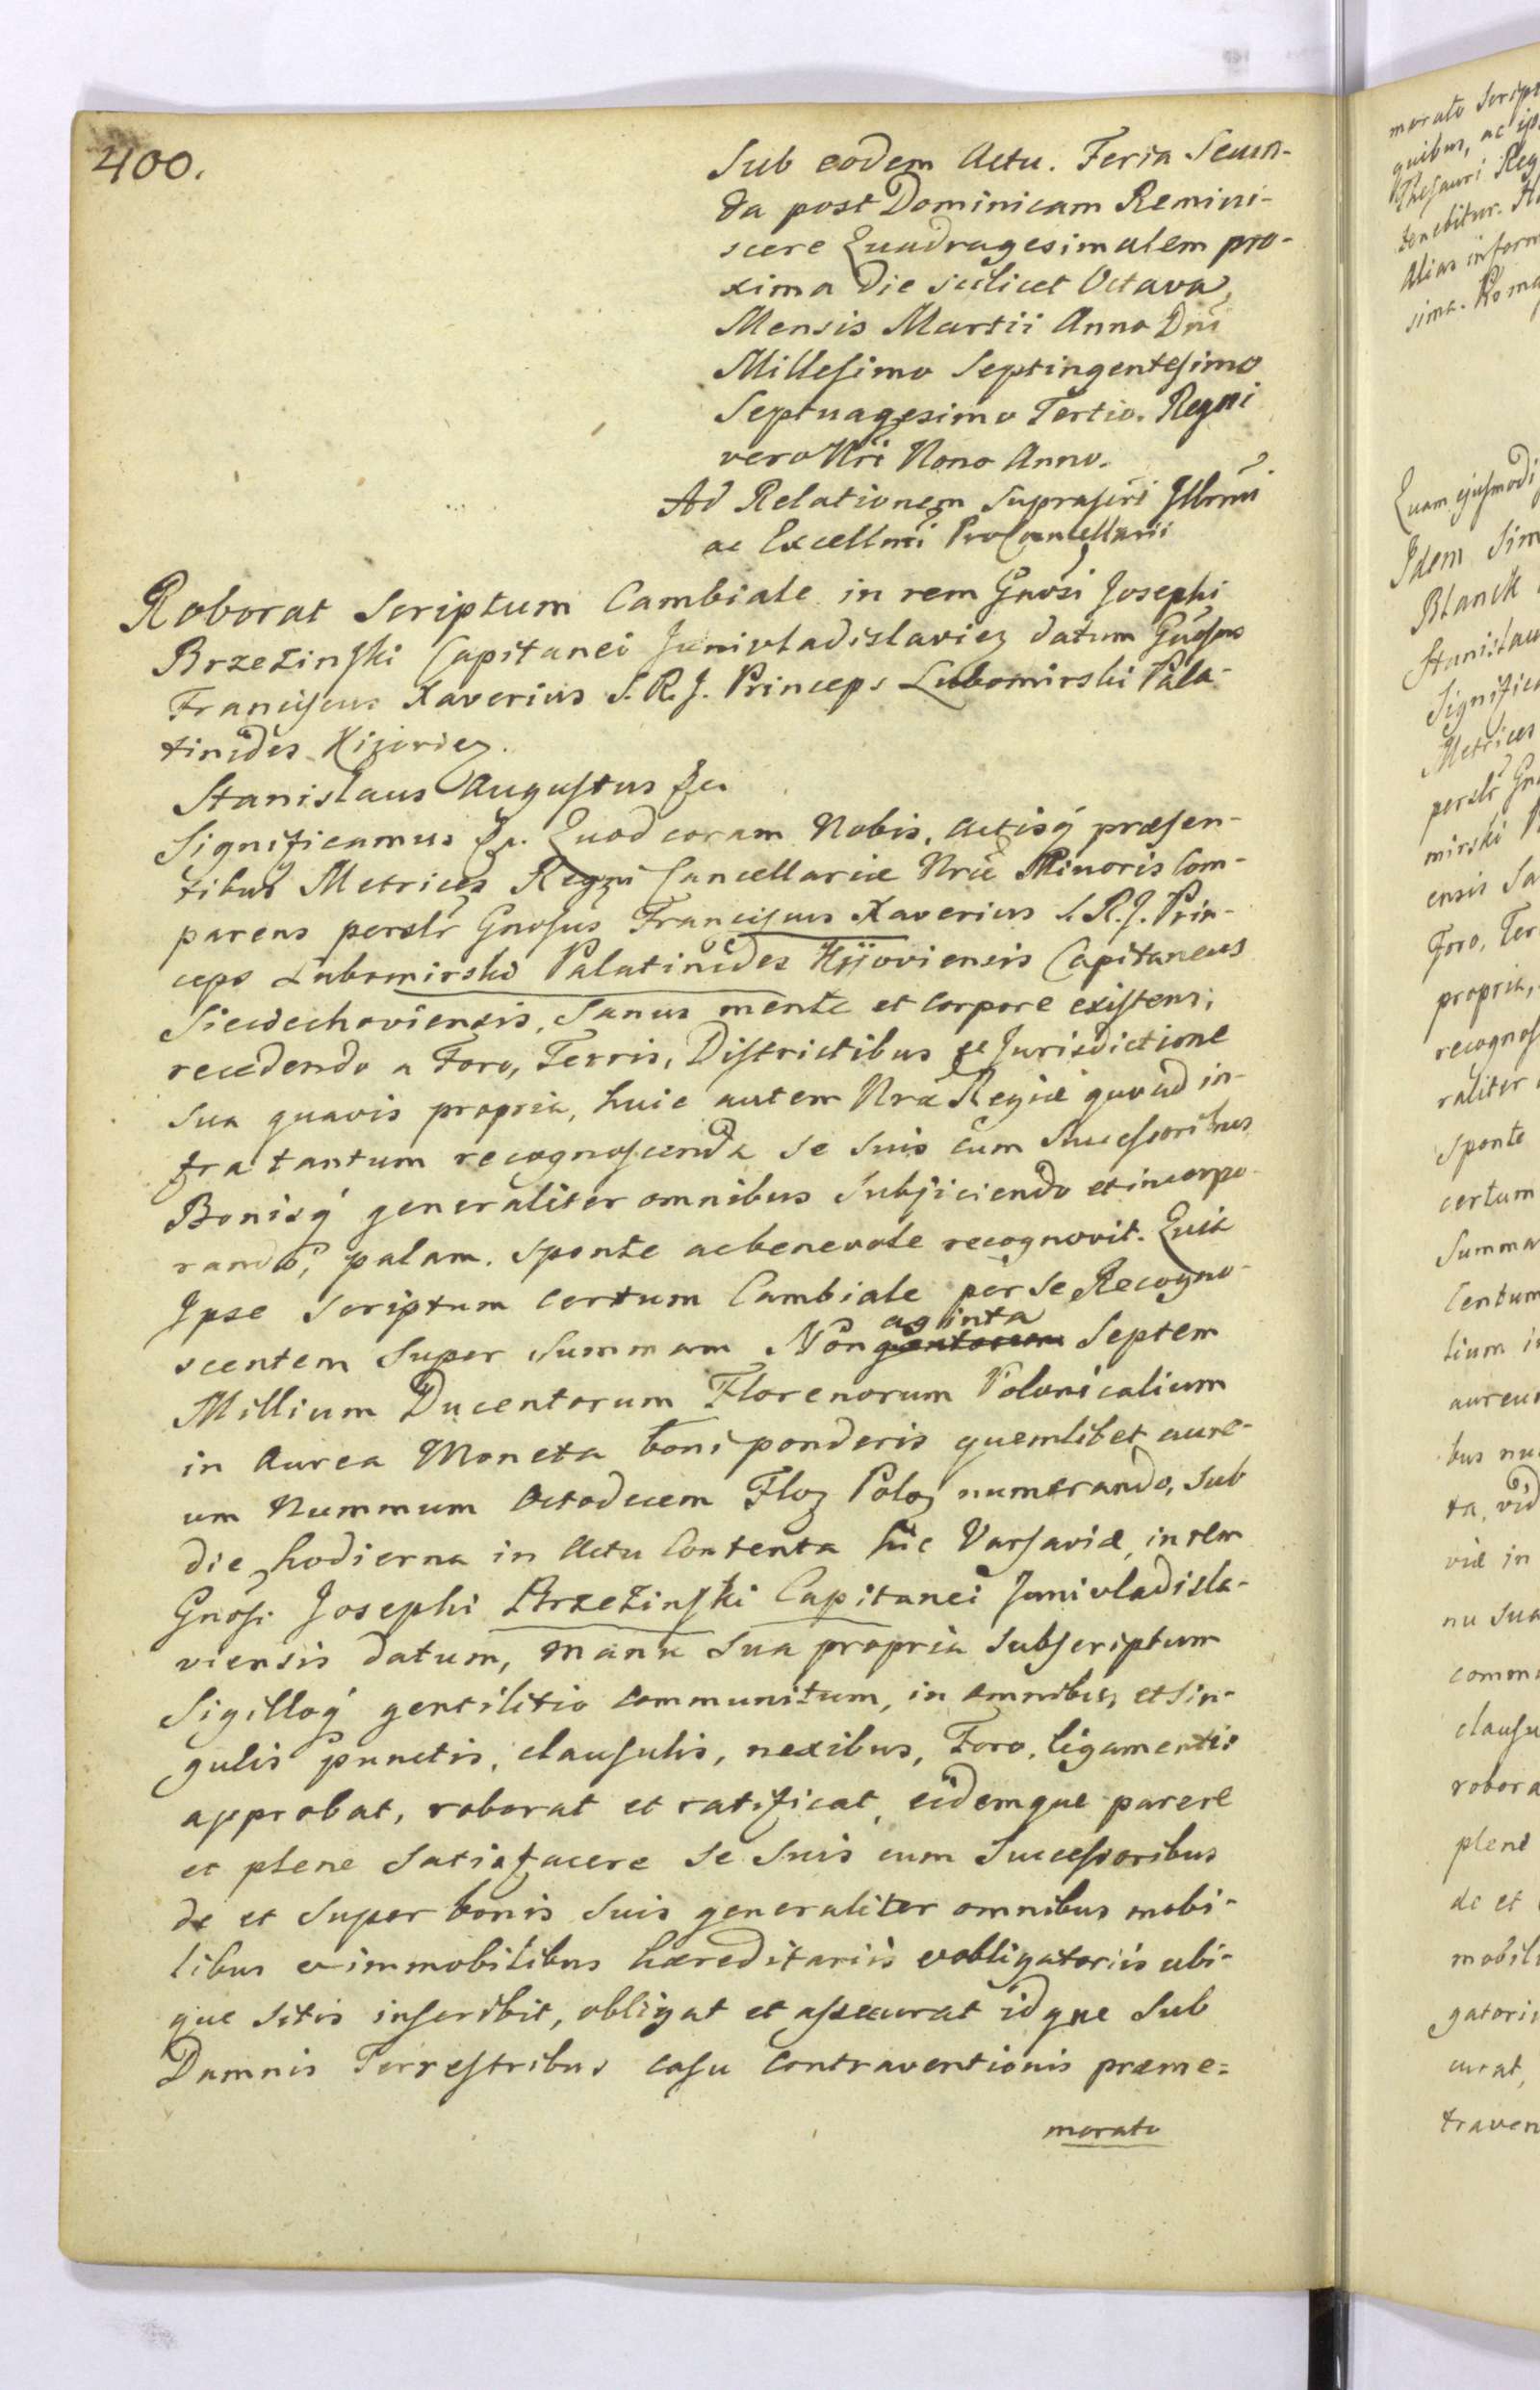 400.
Sub eodem Actu. Feria Secun-
da post Dominicam Remini-
scere Quadragesimalem pro-
xima die scilicet Octava,
Mensis Martii Anno Dni
Millesimo Septingentesimo
Septuagesimo Tertio. Regni
vero Nri Nono Anno.
Ad Relationem suprascri Illrmi
ac Excellmi ProCancellarii
Roborat Scriptum Cambiale in rem Gnosi Josephi
Brzezinski Capitanei Junivladislavien datum Gnosus
Franciscus Xaverius S. R. J. Princeps Lubomirski Pala-
tinides Kijovien.
Stanislaus Augustus &c.
Significamus &c. Quod coram Nobis, Actisq́ præsen-
tibus Metrices Regni Cancellariæ Nræ Minoris Com-
parens perslr Gnosus Franciscus Xaverius S. R. J. Prin-
ceps Lubomirski Palatinides Kijoviensis Capitaneus
Sieciechoviensis, Sanus mente et Corpore existens,
recedendo a Foro, Terris, Districtibus et Jurisdictione
sua quavis propria, huic autem Nræ Regiæ quoad in-
fra tantum recognoscenda se suis cum Successoribus
Bonisq́ generaliter omnibus Subjiciendo et incorpo-
rando, palam. Sponte ac benevole recognovit. Quia
Ipse Scriptum Certum Cambiale per se Recogno-
aginta
scentem super summam Nongentorum Septem
Millium Ducentorum Florenorum Polonicalium
in Aurea Moneta boni ponderis quemlibet aure-
um Nummum Octodecem Floz Poloz numerando, sub
die hodierna in Actu Contenta hic Varsaviæ, in rem
Gnosi Josephi Brzezinski Capitanei Junivladisla-
viensis datum, manu sua propria subscriptum
Sigilloq́ gentilitio communitum, in omnibus et sin-
gulis punctis, clausulis, nexibus, Foro, ligamentis
approbat, roborat et ratificat, eidemque parere
et plene Satisfacere se suis cum Successoribus
de et super bonis suis generaliter omnibus mobi-
libus et immobilibus hæreditariis et obligatoriis ubi-
que sitis inscribit, obligat et assecurat idque sub
Damnis Terrestribus casu Contraventionis præme=
morato
morato Script
quibus, ac ip
Thesauri Reg
tenebitur.
Alias inform
sima. Roma
Quam ejusmodi
Idem Sim
Blanck
Stanislau
Significa
Metrices
perslr Gn
mirski P
ensis Sa
Foro, Ter
propria,
recognos
raliter
Sponte
certum
Summa
Centum
lium i
aureu
bus nu
ta, vid
viæ in
nu sua
commu
clausu
robora
plene
de et
mobili
gatorii
curat,
traven